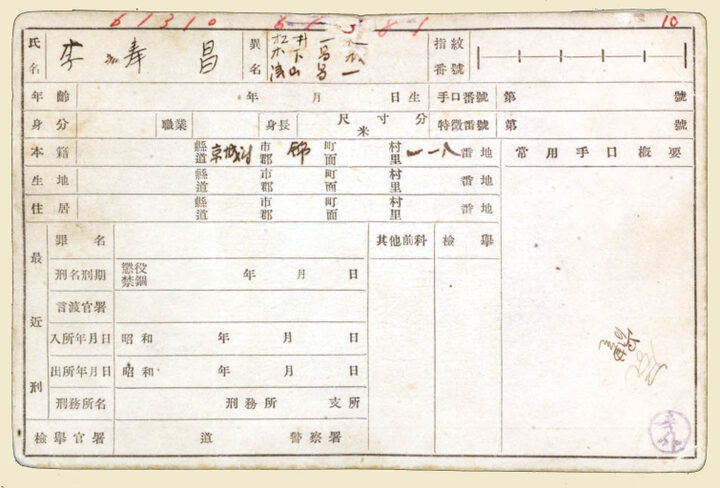 61310 10
氏名 李壽昌 異名 指紋番號
年齡 年 月 日生 手口番號 第 號
身分 職業 身長 尺 寸 分 米 特徵番號 第 號
本籍 縣道 京城府 市郡 錦 町面 村里 一一八 番地 常用手口槪要
生地 縣道 市郡 町面 村里 番地
住居 縣道 市郡 町面 村里 番地
最近刑 罪名 其他前科 檢擧
刑名刑期 懲役 禁錮 年 月 日
言渡官署
入所年月日 昭和 年 月 日
出所年月日 昭和 年 月 日
刑務所名 刑務所 支所
檢擧官署 道 警察署